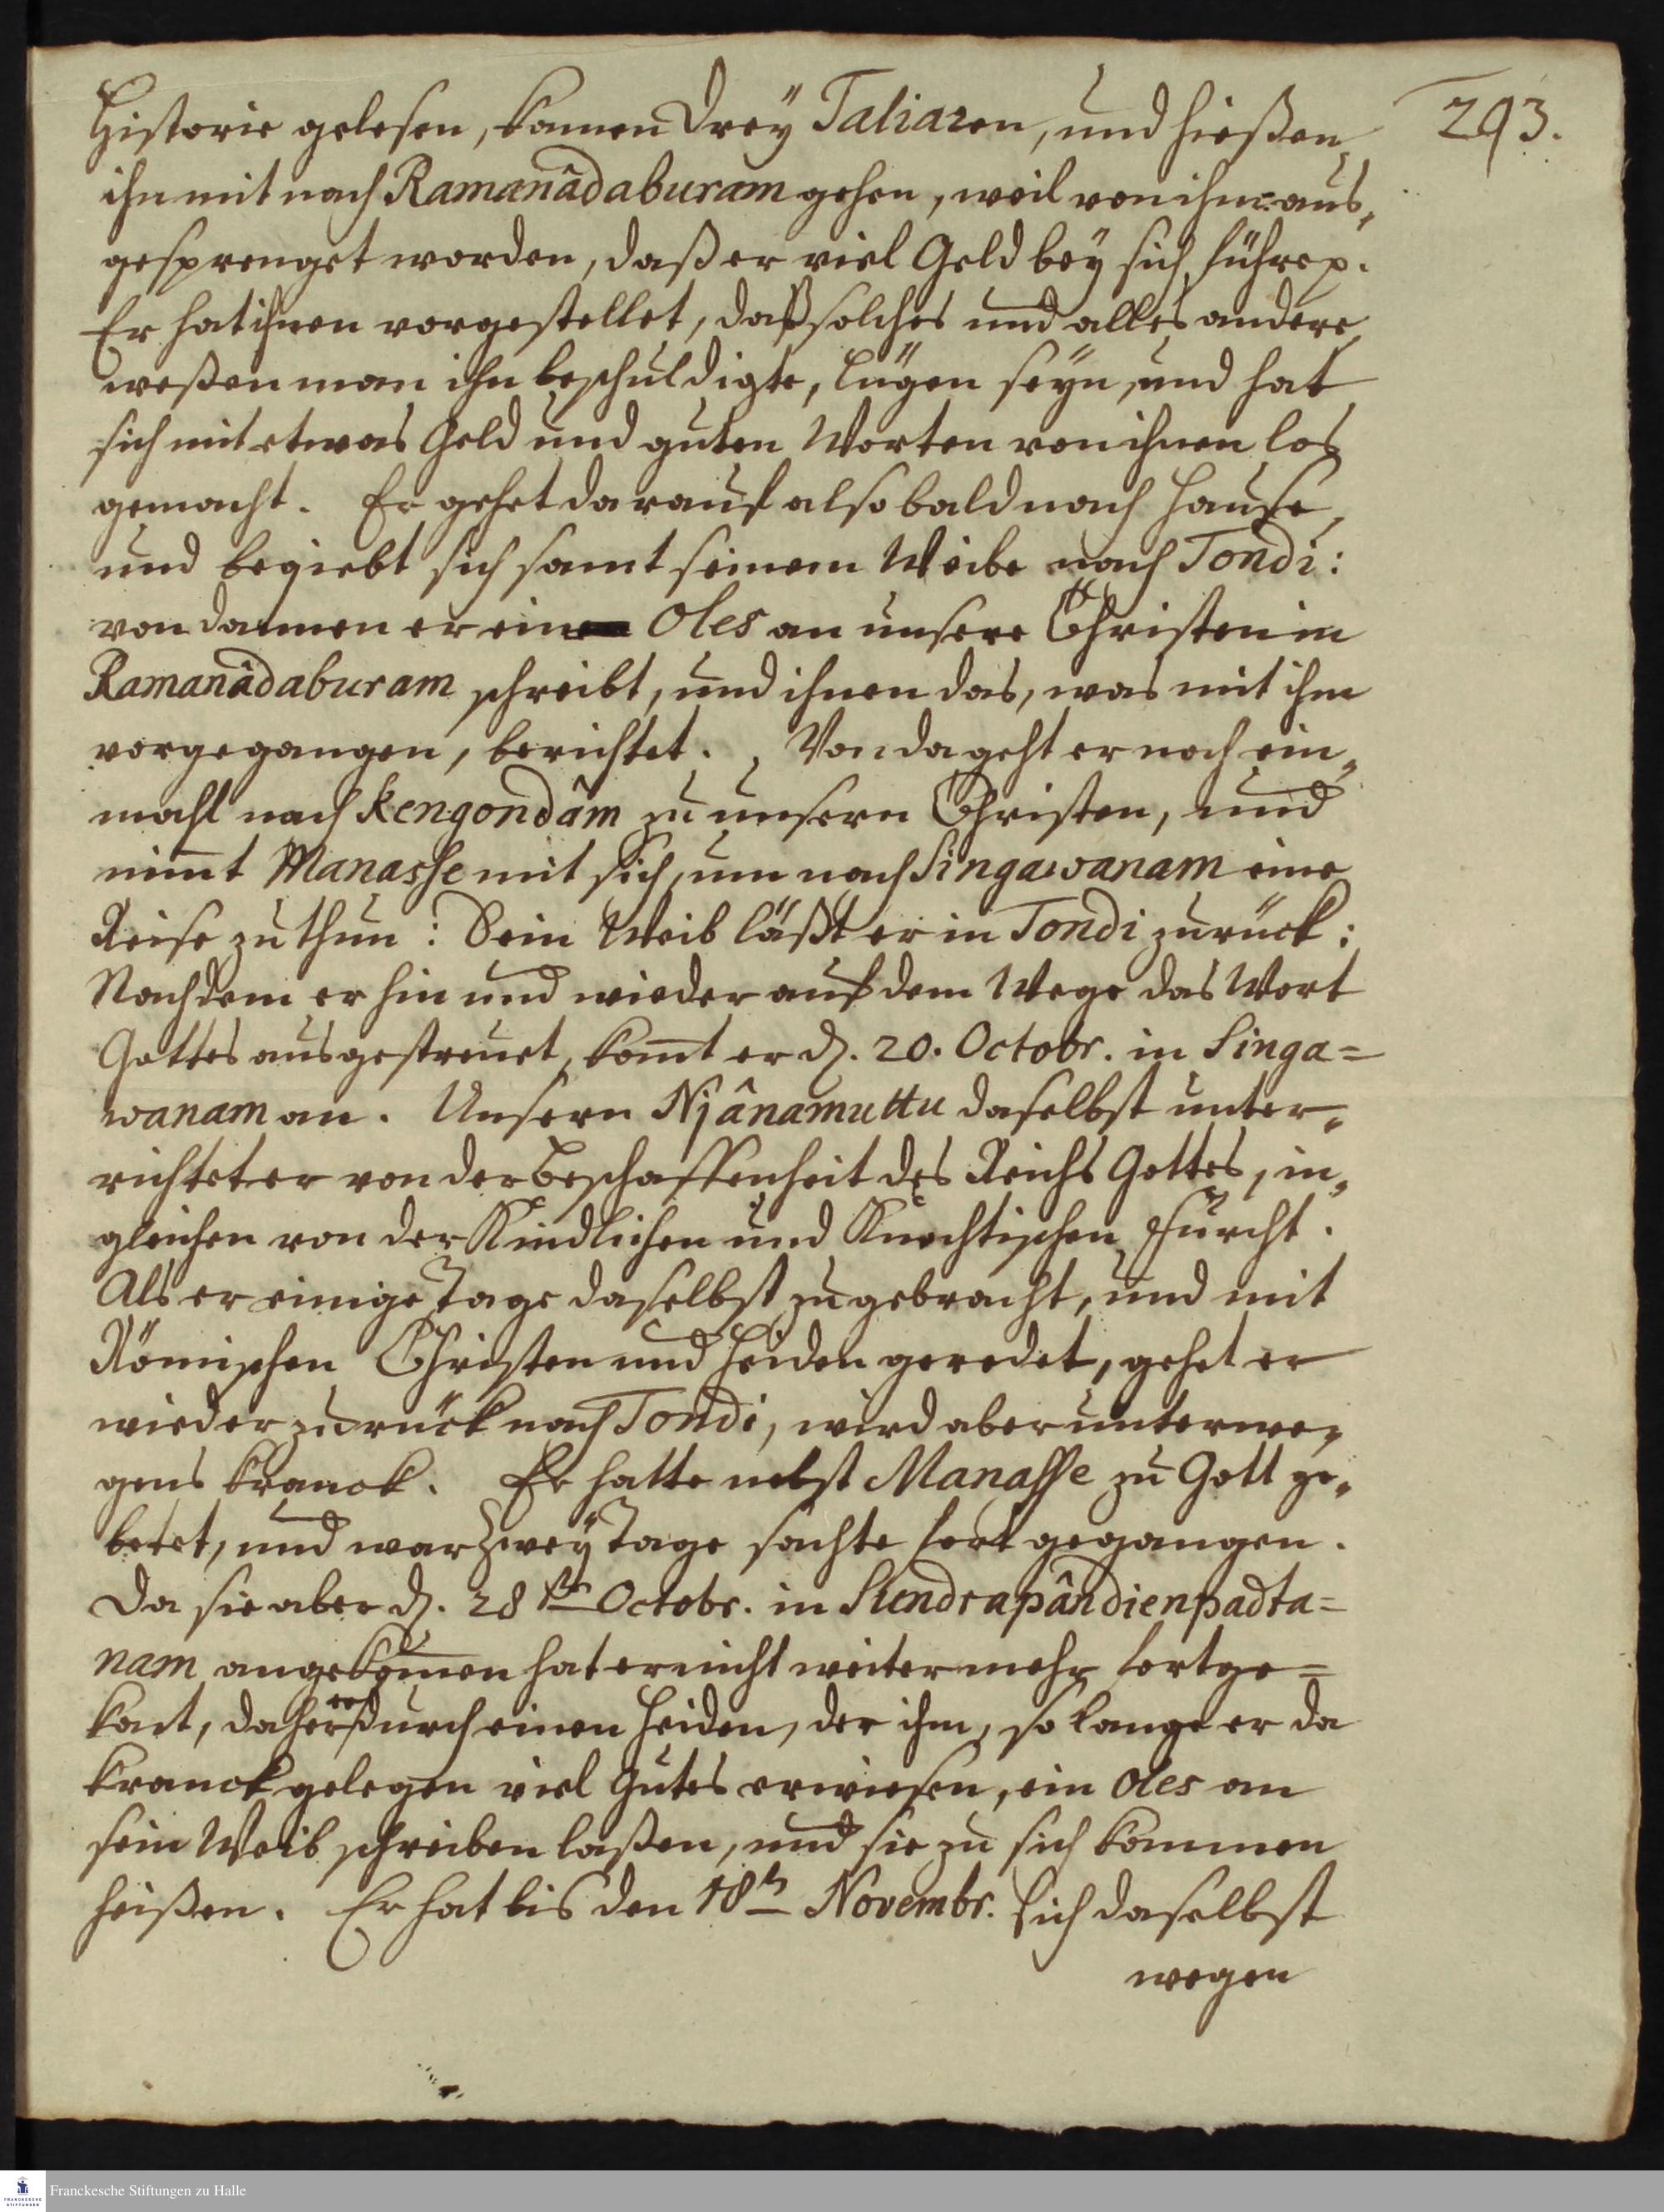 293.
Historie gelesen, kamen drey Taliaren, und hießen
ihn mit nach Ramanâdaburam gehen, weil von ihm aus„
gesprenget worden, daß er viel Geld bey sich führe p.
Er hat ihnen vorgestellet, daß solches und alles andere
weßen man ihn beschuldigte, lügen seyn, und hat
sich mit etwas Geld und guten Worten von ihnen los
gemacht. Er gehet darauf alsobald nach Hause,
und begiebt sich samt seinem Weibe nach Tondi:
von dannen er ein Oles an unsere Christen in
Ramanâdaburam schreibt, und ihnen das, was mit ihm
vorgegangen, berichtet. Von da geht er noch ein„
mahl nach Kengondâm zu unsern Christen, und
nim̅t Manasse mit sich, um nach Singawanam eine
Reise zu thun: Sein Weib läßt er in Tondi zurück:
Nachdem er hin und wieder auf dem Wege das Wort
Gottes ausgestreuet, kom̅t er d. 20. Octobr. in Singa=
wanam an. Unsern Njânamuttu daselbst unter„
richtet er von der Beschaffenheit des Reichs Gottes, in„
gleichen von der Kindlichen und Knechtischen Furcht.
Als er einige Tage daselbst zugebracht, und mit
Römischen Christen und Heiden geredet, gehet er
wieder zurück nach Tondi, wird aber unterwe„
gens kranck. Er hatte nebst Manasse zu Gott ge„
betet, und war zwey Tage sachte fort gegangen.
Da sie aber d. 28 st. Octobr. in Sundrapândienpadta=
nam angekom̅en hat er nicht weiter mehr fortge=
kont, daher er durch einen Heiden, der ihm, so lange er da
kranck gelegen viel Gutes erwiesen, ein Oles an
sein Weib schreiben laßen, und sie zu sich kommen
heißen. Er hat bis den 18t Novembr. sich daselbst
wegen
Franckesche Stiftungen zu Halle
FRANCKESCHE STIFTUNGEN